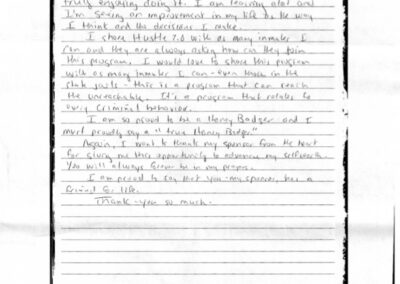 truly enjoying doing it. I am learning alot and
I'm seeing an improvement in my life as the way
I think and the decisions I make.
I share Hustle 2.0 with as many inmates I
can and they are always asking how can they join
this program. I would love to share this program
with as many inmates I can - even those in the
state jails - this is a program that can reach
the unreachable. It's a program that relates to
every Criminal behavior.
I am so proud to be a Honey Badger and I
must proudly say a "true Honey Badger"
Again, I want to thank my sponsor from the heart
for giving me this opportunity to advance my self
You will always forever be in my prayers.
I am proud to say that you - my sponsor, has a
friend for life.
Thank-you so much.